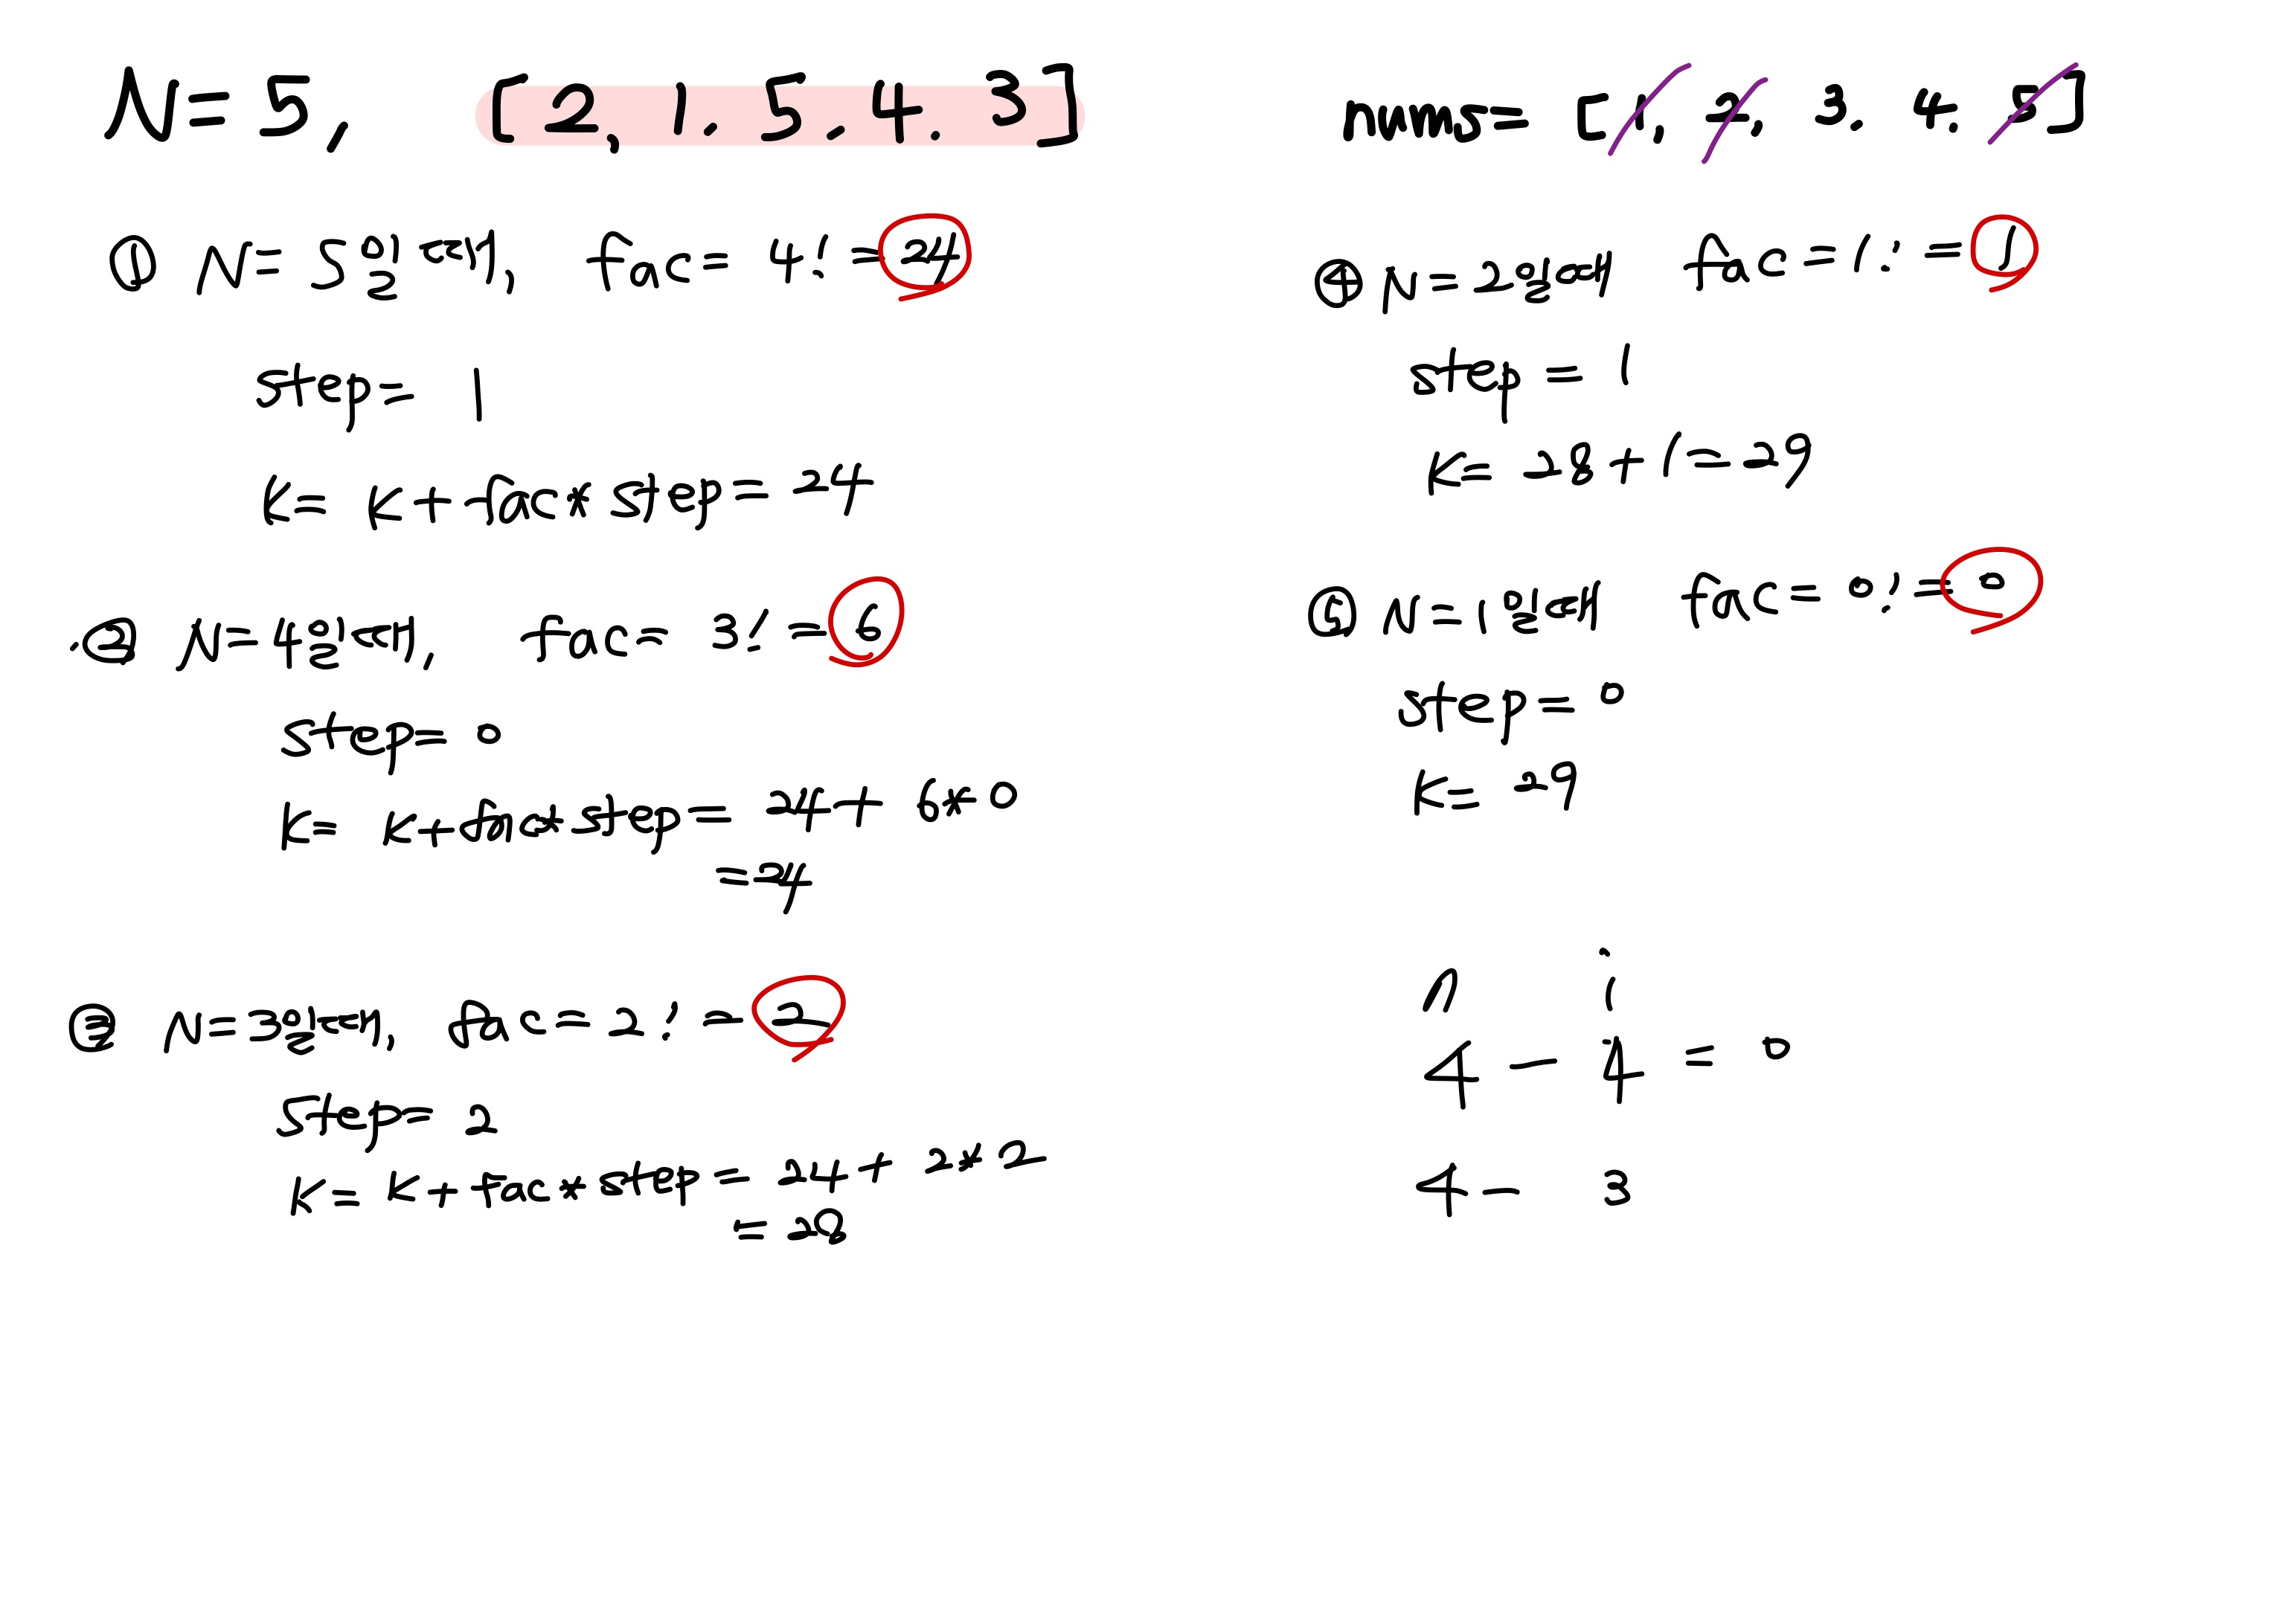 N= 5, [2, 1. 5. 4. 3]
① N= 5일 때, fac= 4! = 24
step= 1
K= K+fac* step= 24
② N=4일 때, fac= 3! = 6
step= 0
K= K+fac* step= 24+ 6* 0
=24
③ N=3일 때, fac= 2! = 2
step= 2
K= K+ fac* step= 24+ 2* 2
= 28
nums= [1, 2, 3. 4. 5]
④ N=2일 때 fac=1! = 1
step = 1
K= 28+1=29
⑤ N=1일 때 fac= 0! = 0
step= 0
K= 29
n i
4 - 4 = 0
4 - 3